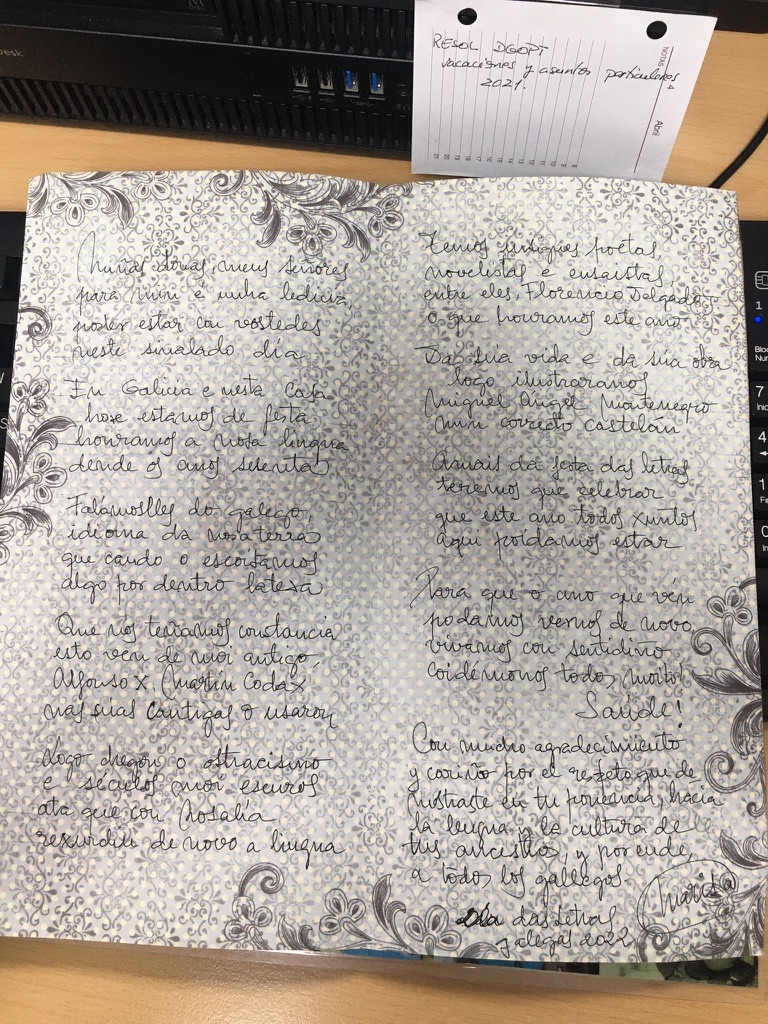 RESOL DGOPT
vacaciones y asuntos particulares
2021.
NOTAS 4
Abril
Miñas donas, meus señores
para min e unha ledicia
poder estar con vostedes
neste sinalado día
En Galicia e nesta casa
hoxe estamos de festa
honramos a nosa lingua
dende os anos setenta
Falámoslles do galego,
idioma da nosa terra
que cando o escoitamos
algo por dentro latexa
Que nós teñamos constancia
esto ven de moi antigo,
Alfonso X, Martín Codax
nas suas cantigas o usaron
Logo chegou o ostracismo
e séculos moi escuros
ata que con Rosalía
rexurdiu de novo a lingua
Temos insignes poetas,
novelistas e ensaistas,
entre eles, Florencio Delgado
o que honramos este ano
Da sua vida e da súa obra
logo ilustraranos
Miguel Angel Montenegro
nun correcto castelán
Amais da festa das letras
teremos que celebrar
que este ano todos xuntos
aquí poidamos estar
Para que o ano que vén
podamos vernos de novo
vivamos con sentidiño
coidémonos todos moito!
Saúde!
Con mucho agradecimiento
y cariño por el respeto que de
mostraste en tu ponencia, hacia
la lengua y la cultura de
tus ancestros, y por ende,
a todos los gallegos.
Marisa
Día das Letras
galegas 2022